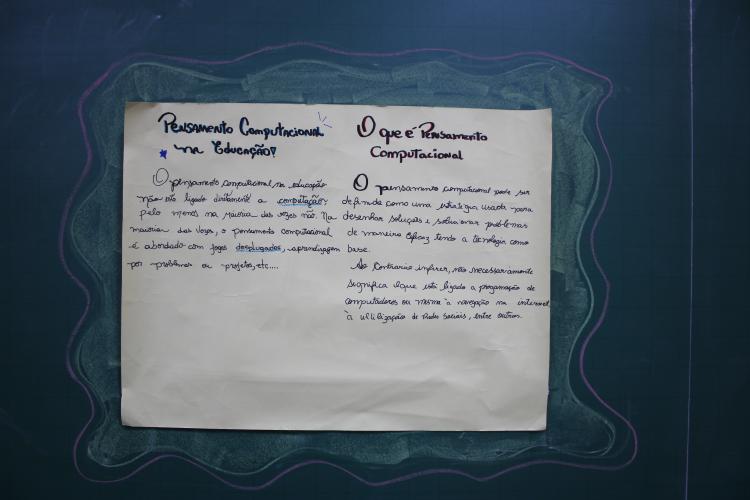 Pensamento Computacional
na Educação!
O pensamento computacional na educação
não está ligado diretamente a computação,
pelo menos na maioria das vezes não. Na
maioria das vezes, o pensamento computacional
é abordado com jogos desplugados, aprendizagem
por problemas ou projetos, etc....
O que é Pensamento
Computacional
O pensamento computacional pode ser
definido como uma estratégia usada para
desenhar soluções e solucionar problemas
de maneira eficaz tendo a tecnologia como
base.
Ao contrário inferir, não necessariamente
significa que está ligado a programação de
computadores ou mesmo à navegação na internet
à utilização de redes sociais, entre outros.